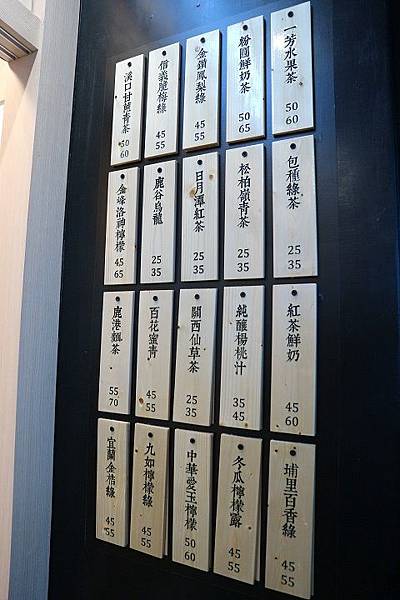 一芳水果茶 50 60
粉圓鮮奶茶 50 65
金鑽鳳梨綠 45 55
信義脆梅綠 45 55
溪口甘蔗青茶 50 60
包種綠茶 25 35
松柏嶺青茶 25 35
日月潭紅茶 25 35
鹿谷烏龍 25 35
金峰洛神檸檬 45 65
紅茶鮮奶 45 60
純釀楊桃汁 35 45
關西仙草茶 25 35
百花蜜青 45 55
鹿港麵茶 55 70
埔里百香綠 45 55
冬瓜檸檬露 45 55
中華愛玉檸檬 50 60
九如檸檬綠 45 55
宜蘭金桔綠 45 55